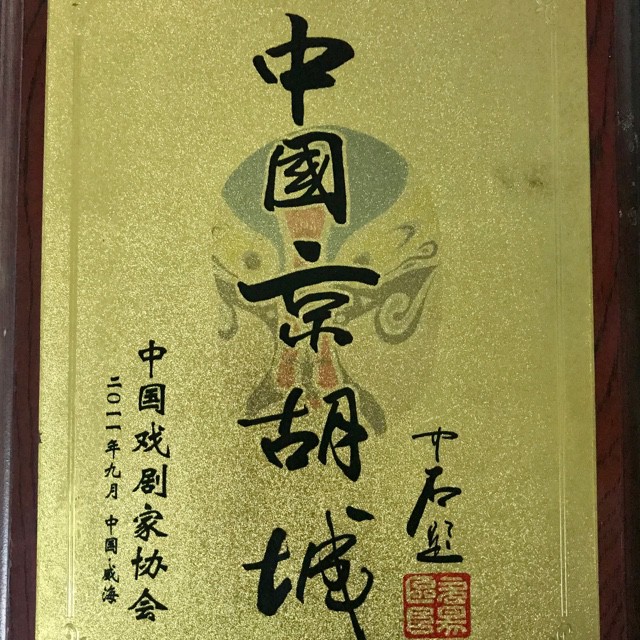 中國京胡城
中石题
中国戏剧家协会
二〇一一年九月 中国·威海